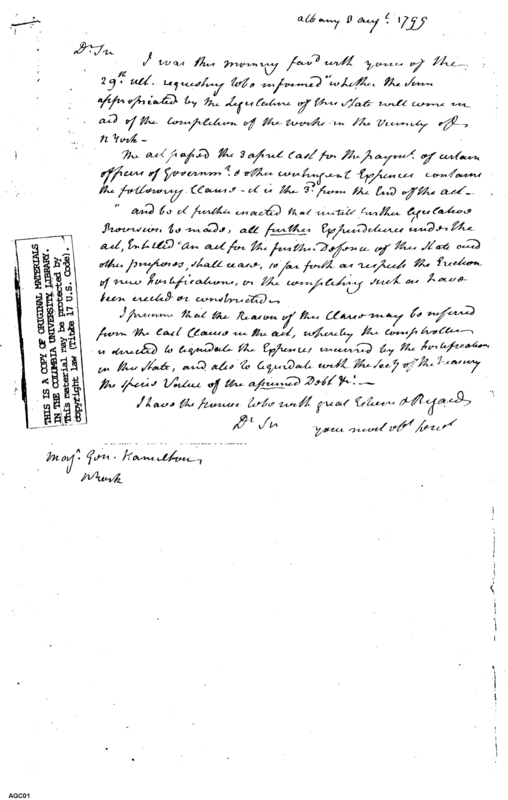 Albany 8 augt. 1799
Dr Sir
I was this morning favd with yours of the
29th ult. requesting to be informed "whether the sum
appropriated by the Legislature of this State will come in
aid of the completion of the works in the vicinity of
N York –
The act passed the 3 april last for the paymt. of certain
officers of Governmt. & other contingent Expences contains
the following Clause – it is the 3d. from the End of the act –
" and be it further enacted that untill further legislative
Provision be made, all further Expenditures under the
act, Entitled "An act for the further Defence of this State and
other purposes, shall cease, so far forth as respects the Erection
of new Fortifications, or the completing such as have
been erected or constructed
I presume that the Reason of this Clause may be inferred
from the last Clause in the act, whereby the comptroller
is directed to liquidate the Expences incurred by the Fortification
in this State, and also to liquidate with the Secty of the Treasury
the specie Value of the assumed Debt &c. –
I have the honour to be with great Esteem & Regard
Dr Sir
your most obt servt
Majr. Gen. Hamilton
N York
THIS IS A COPY OF ORIGINAL MATERIALS
IN THE COLUMBIA UNIVERSITY LIBRARY.
This material may be protected by
copyright law (Title 17 U.S. Code).
AGC01